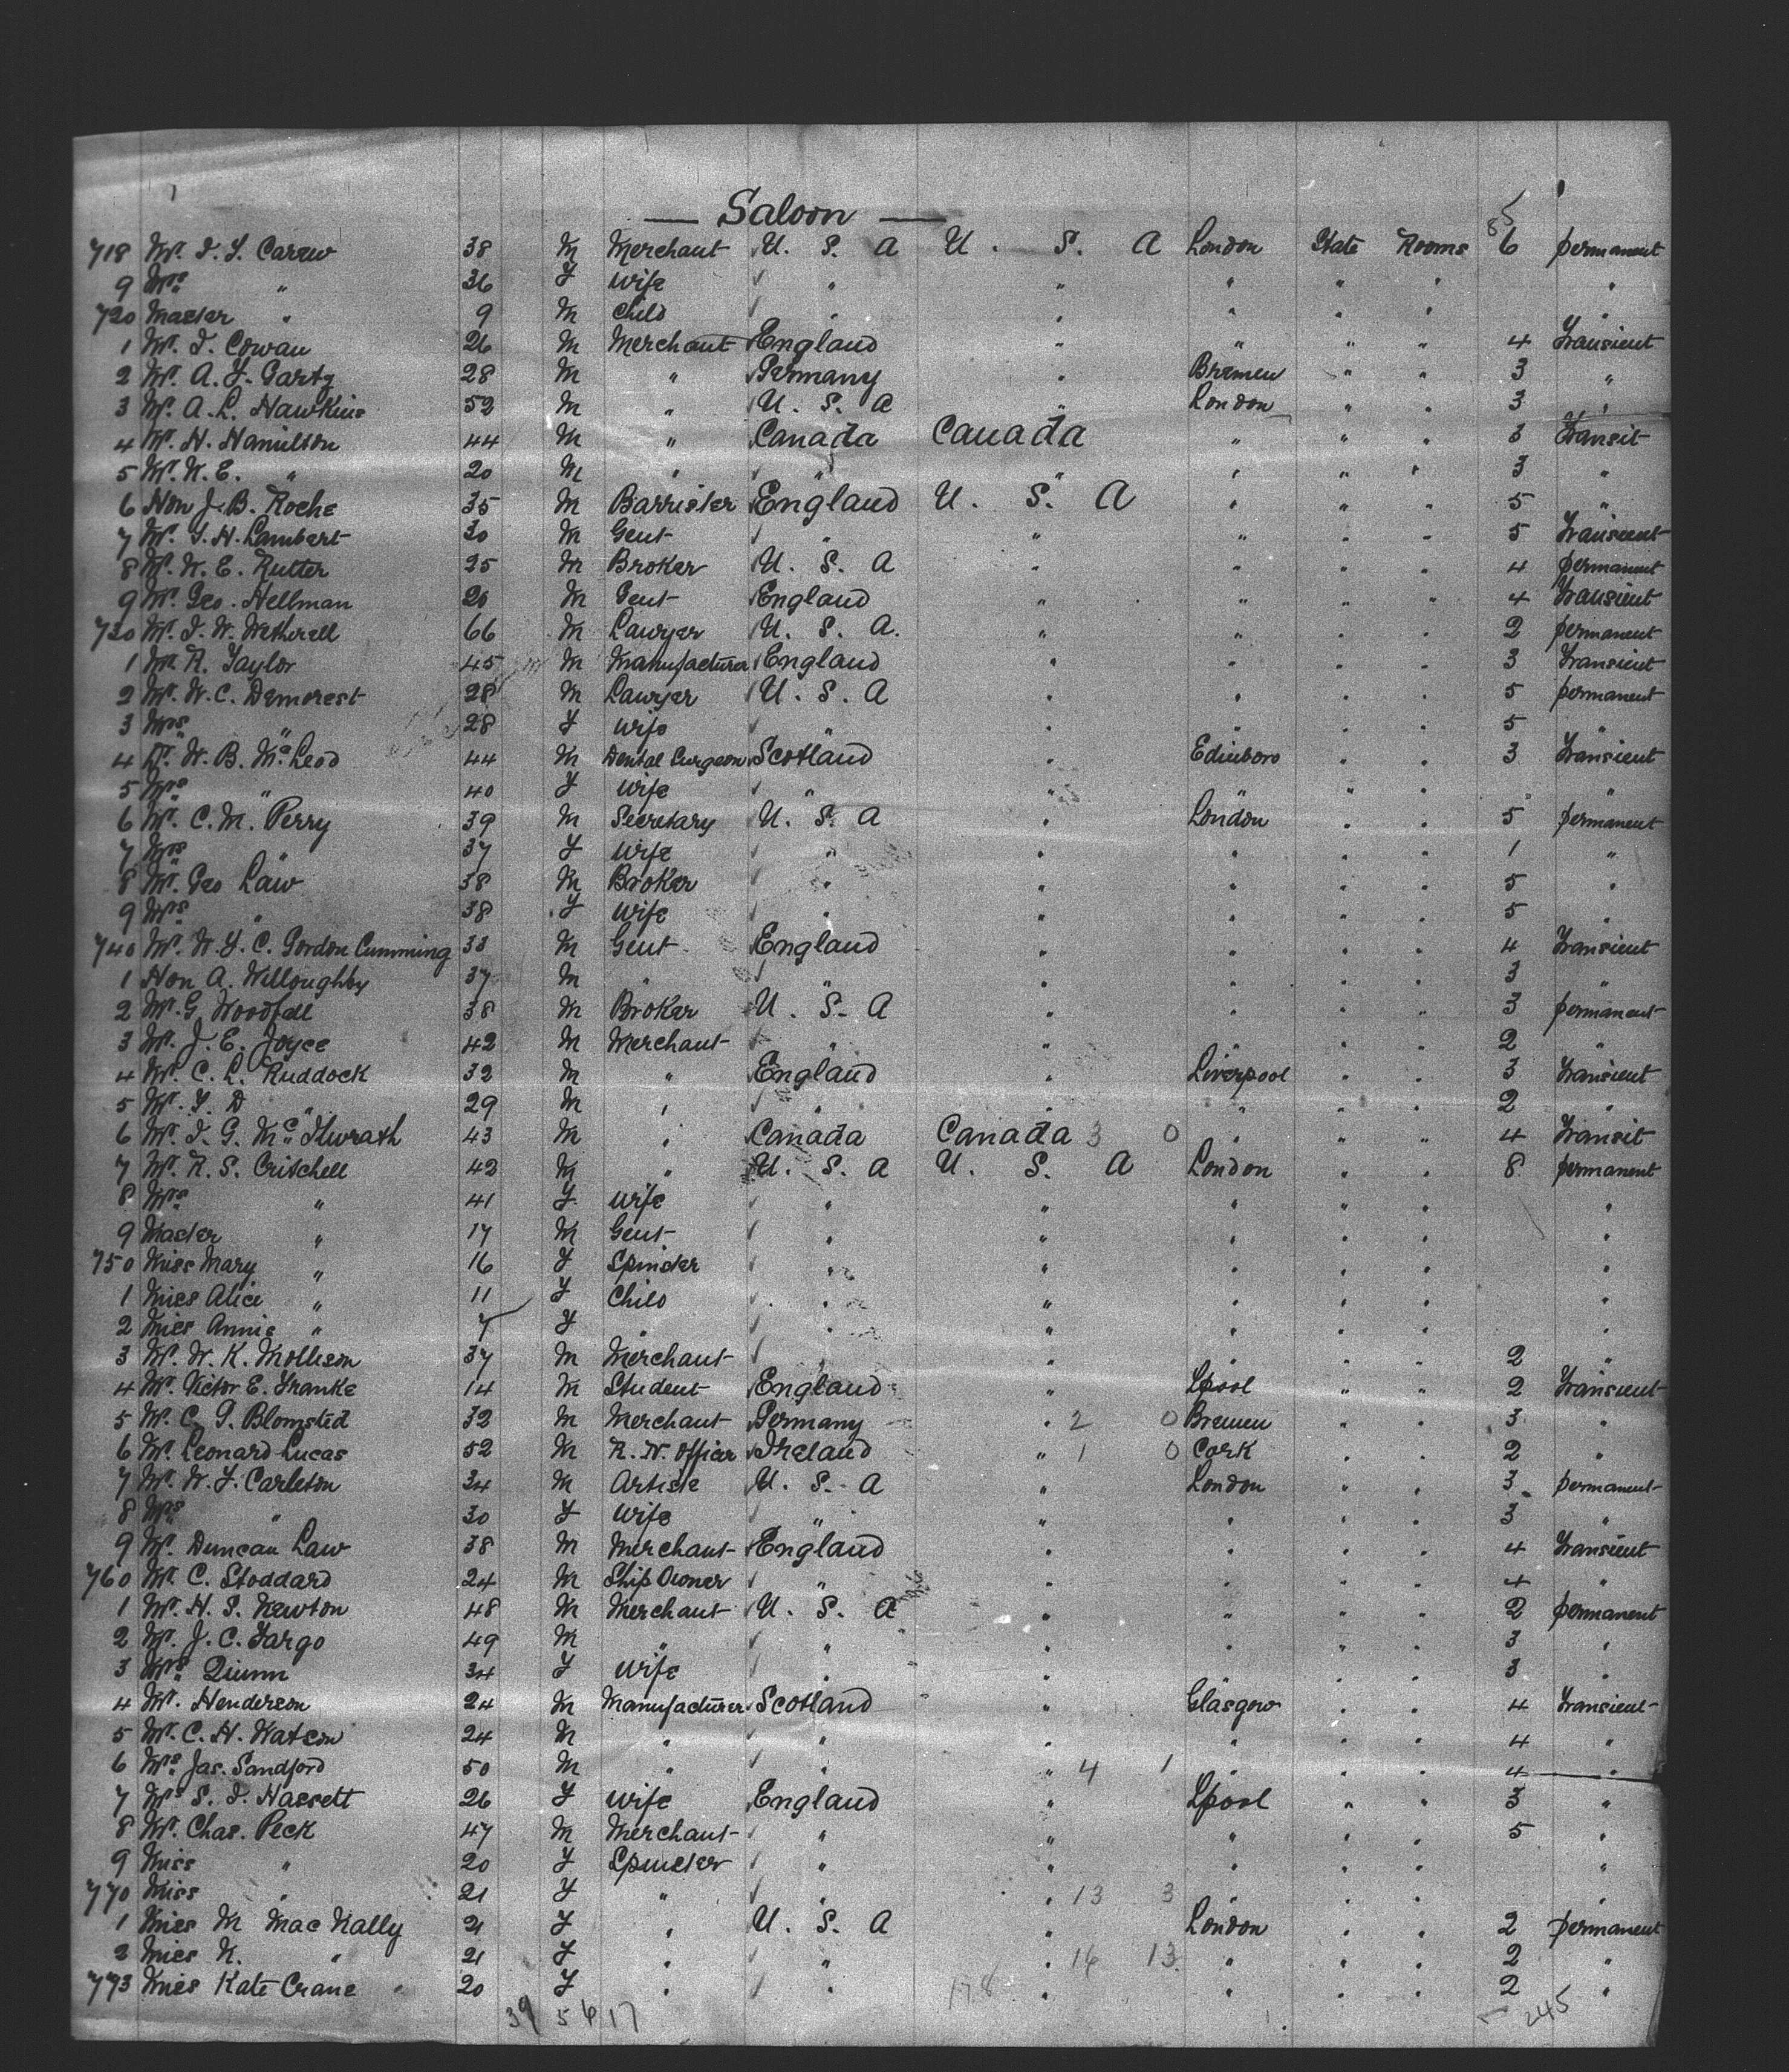 — Saloon —
5
718 Mr. I. Y. Carew 38 M Merchant U. S. A U. S. A London State Rooms 6 permanent
9 Mrs " 36 F wife " " " " " "
720 Master " 9 M Child " " " " " "
1 Mr. I. Cowan 26 M Merchant England " " " " 4 Transient
2 Mr. A. F. Gartz 28 M " Germany " Bremen " " 3 "
3 Mr. A. L. Hawkins 52 M " U. S. A " London " " 3 "
4 Mr. H. Hamilton 44 M " Canada Canada " " " 3 Transit
5 Mr. K. E. " 20 M " " " " " " 3 "
6 Hon J. B. Roche 35 M Barrister England U. S. A " " " 5 "
7 Mr. G. H. Lambert 30 M Gent " " " " " 5 Transient
8 Mr. W. E. Rutter 25 M Broker U. S. A " " " " 4 permanent
9 Mr. Geo. Hellman 26 M Gent England " " " " 4 Transient
730 Mr. I. W. Wetherell 66 M Lawyer U. S. A. " " " " 2 permanent
1 Mr. R. Taylor 45 M Manufacturer England " " " " 3 Transient
2 Mr. W. C. Demorest 28 M Lawyer U. S. A " " " " 5 permanent
3 Mrs " 28 F wife " " " " " 5 "
4 Dr. W. B. McLeod 44 M Dental Surgeon Scotland " Edinboro " " 3 Transient
5 Mrs " 40 F wife " " " " " " "
6 Mr. C. M. Perry 39 M Secretary U. S. A " London " " 5 permanent
7 Mrs " 37 F wife " " " " " 1 "
8 Mr. Geo Law 38 M Broker " " " " " 5 "
9 Mrs " 38 F wife " " " " " 5 "
740 Mr. W. F. C. Gordon Cumming 33 M Gent England " " " " 4 Transient
1 Hon A. Willoughby 37 M " " " " " " 3 "
2 Mr. G. Woodfall 38 M Broker U. S. A " " " " 3 permanent
3 Mr. J. E. Joyce 42 M Merchant " " " " " 2 "
4 Mr. C. L. Ruddock 32 M " England " Liverpool " " 3 Transient
5 Mr. F. D " 29 M " " " " " " 2 "
6 Mr. I. G. McIlwrath 43 M " Canada Canada 3 0 " " " 4 Transit
7 Mr. R. S. Critchell 42 M " U. S. A U. S. A London " " 8 permanent
8 Mrs " 41 F wife " " " " " "
9 Master " 17 M Gent " " " " " "
750 Miss Mary " 16 F Spinster " " " " " "
1 Miss Alice " 11 F Child " " " " " "
2 Miss Annie " 7 F " " " " " " "
3 Mr. W. K. Mollison 37 M Merchant " " " " " 2 "
4 Mr. Victor E. Franke 14 M Student England " Lpool " " 2 Transient
5 Mr. C. G. Blomsted 32 M Merchant Germany " 2 0 Bremen " " 3 "
6 Mr. Leonard Lucas 52 M R. N. Officer Ireland " 1 0 Cork " " 2 "
7 Mr. W. F. Carleton 34 M Artiste U. S. A " London " " 3 permanent
8 Mrs " 30 F wife " " " " " 3 "
9 Mr. Duncan Law 38 M Merchant England " " " " 4 Transient
760 Mr. C. Stoddard 24 M Ship Owner " " " " " 4 "
1 Mr. H. S. Newton 48 M Merchant U. S. A " " " " 2 permanent
2 Mr. J. C. Fargo 49 M " " " " " " 3 "
3 Mrs Quinn 34 F wife " " " " " 3 "
4 Mr. Henderson 24 M Manufacturer Scotland " Glasgow " " 4 Transient
5 Mr. C. H. Watson 24 M " " " " " " 4 "
6 Mr. Jas. Sandford 50 M " " " 4 1 " " " 4 "
7 Mrs S. I. Hassett 26 F wife England " Lpool " " 3 "
8 Mr. Chas. Peck 47 M Merchant " " " " " 5 "
9 Miss " 20 F Spinster " " " " " "
770 Miss " 21 F " " " 13 3 " " " "
1 Miss M MacNally 21 F " U. S. A " London " " 2 permanent
2 Miss K. " 21 F " " " 14 13 " " " 2 "
773 Miss Kate Crane 20 F " " " " " " 2 "
39 56 17 178 245